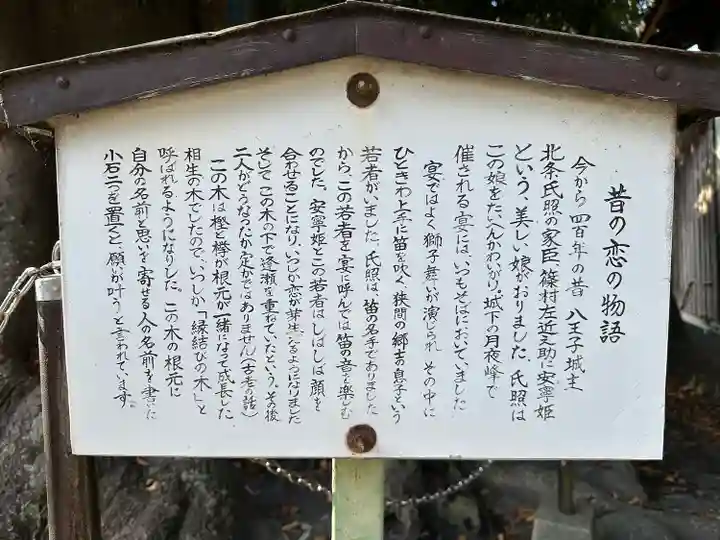 昔の恋の物語
今から四百年の昔 八王子城主
北条氏照の家臣 篠村左近之助に安寧姫
という、美しい娘がおりました。氏照は
この娘をたいへんかわいがり。城下の月夜峰で
催される宴には、いつもそばにおいていました
宴ではよく獅子舞いが演じられ その中に
ひときわ上手に笛を吹く、狭間の郷士の息子という
若者がいました。氏照は、笛の名手でありました
から、この若者を宴に呼んでは笛の音を楽しむ
のでした。安寧姫とこの若者はしばしば顔を
合わせることになり、いつしか恋が芽生えるようになりました
そして この木の下で逢瀬を重ねていたという。その後
二人がどうなったか定かではありません(古老の話)
この木は樫と欅が根元が一緒になって成長した
相生の木でしたので、いつしか「縁結びの木」と
呼ばれるようになりした。この木の根元に
自分の名前と思いを寄せる人の名前を書いた
小石二つを置くと、願いが叶うと言われています。